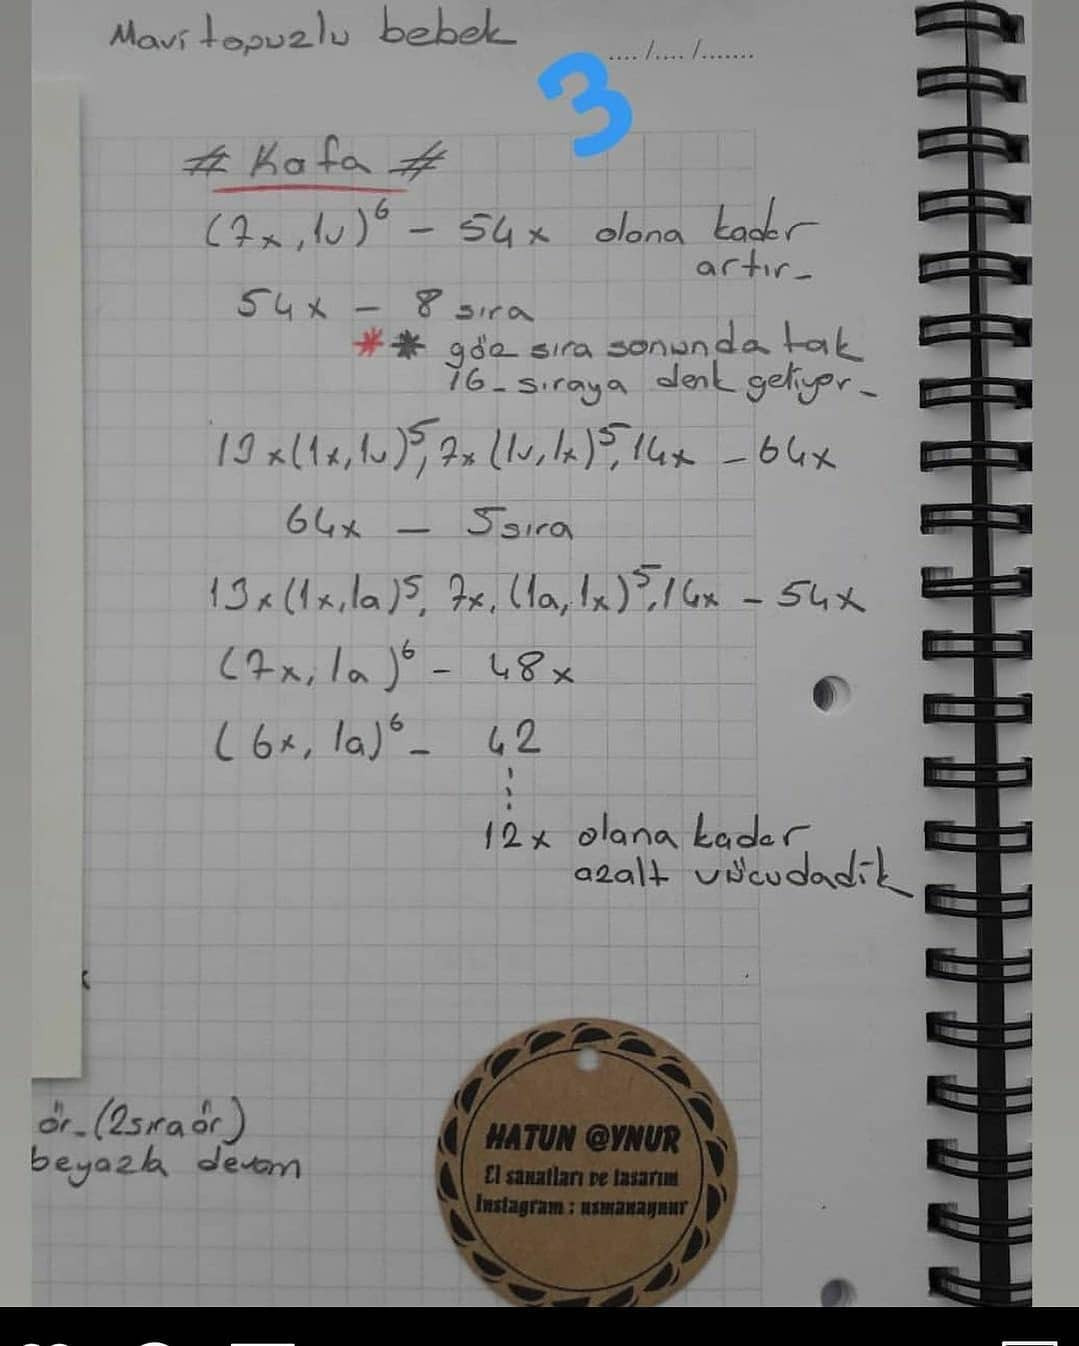 Mavi topuzlu bebek
..../..../.......
3
# Kafa #
(7x, 1v)⁶ - 54x olana kadar
artır-
54x - 8 sıra
** göz sıra sonunda tak
16- sıraya denk geliyor-
13x(1x, 1v)⁵, 7x (1v, 1x)⁵, 14x - 64x
64x - 5 sıra
13x(1x, 1a)⁵, 7x, (1a, 1x)⁵, 14x - 54x
(7x, 1a)⁶ - 48x
(6x, 1a)⁶ - 42
12x olana kadar
azalt vücudadik
ör- (2sıra ör)
beyazla devam
HATUN @YNUR
El sanatları ve tasarım
Instagram : usmanaynur